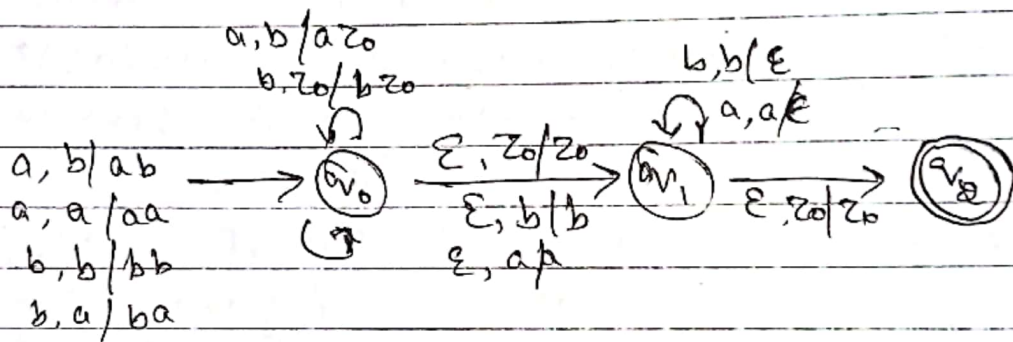 a, b/az₀
b, z₀/bz₀
b, b/ε
a, a/ε
a, b/ab
a, a/aa
b, b/bb
b, a/ba
q₀
ε, z₀/z₀
ε, b/b
ε, a/a
q₁
ε, z₀/z₀
q₂